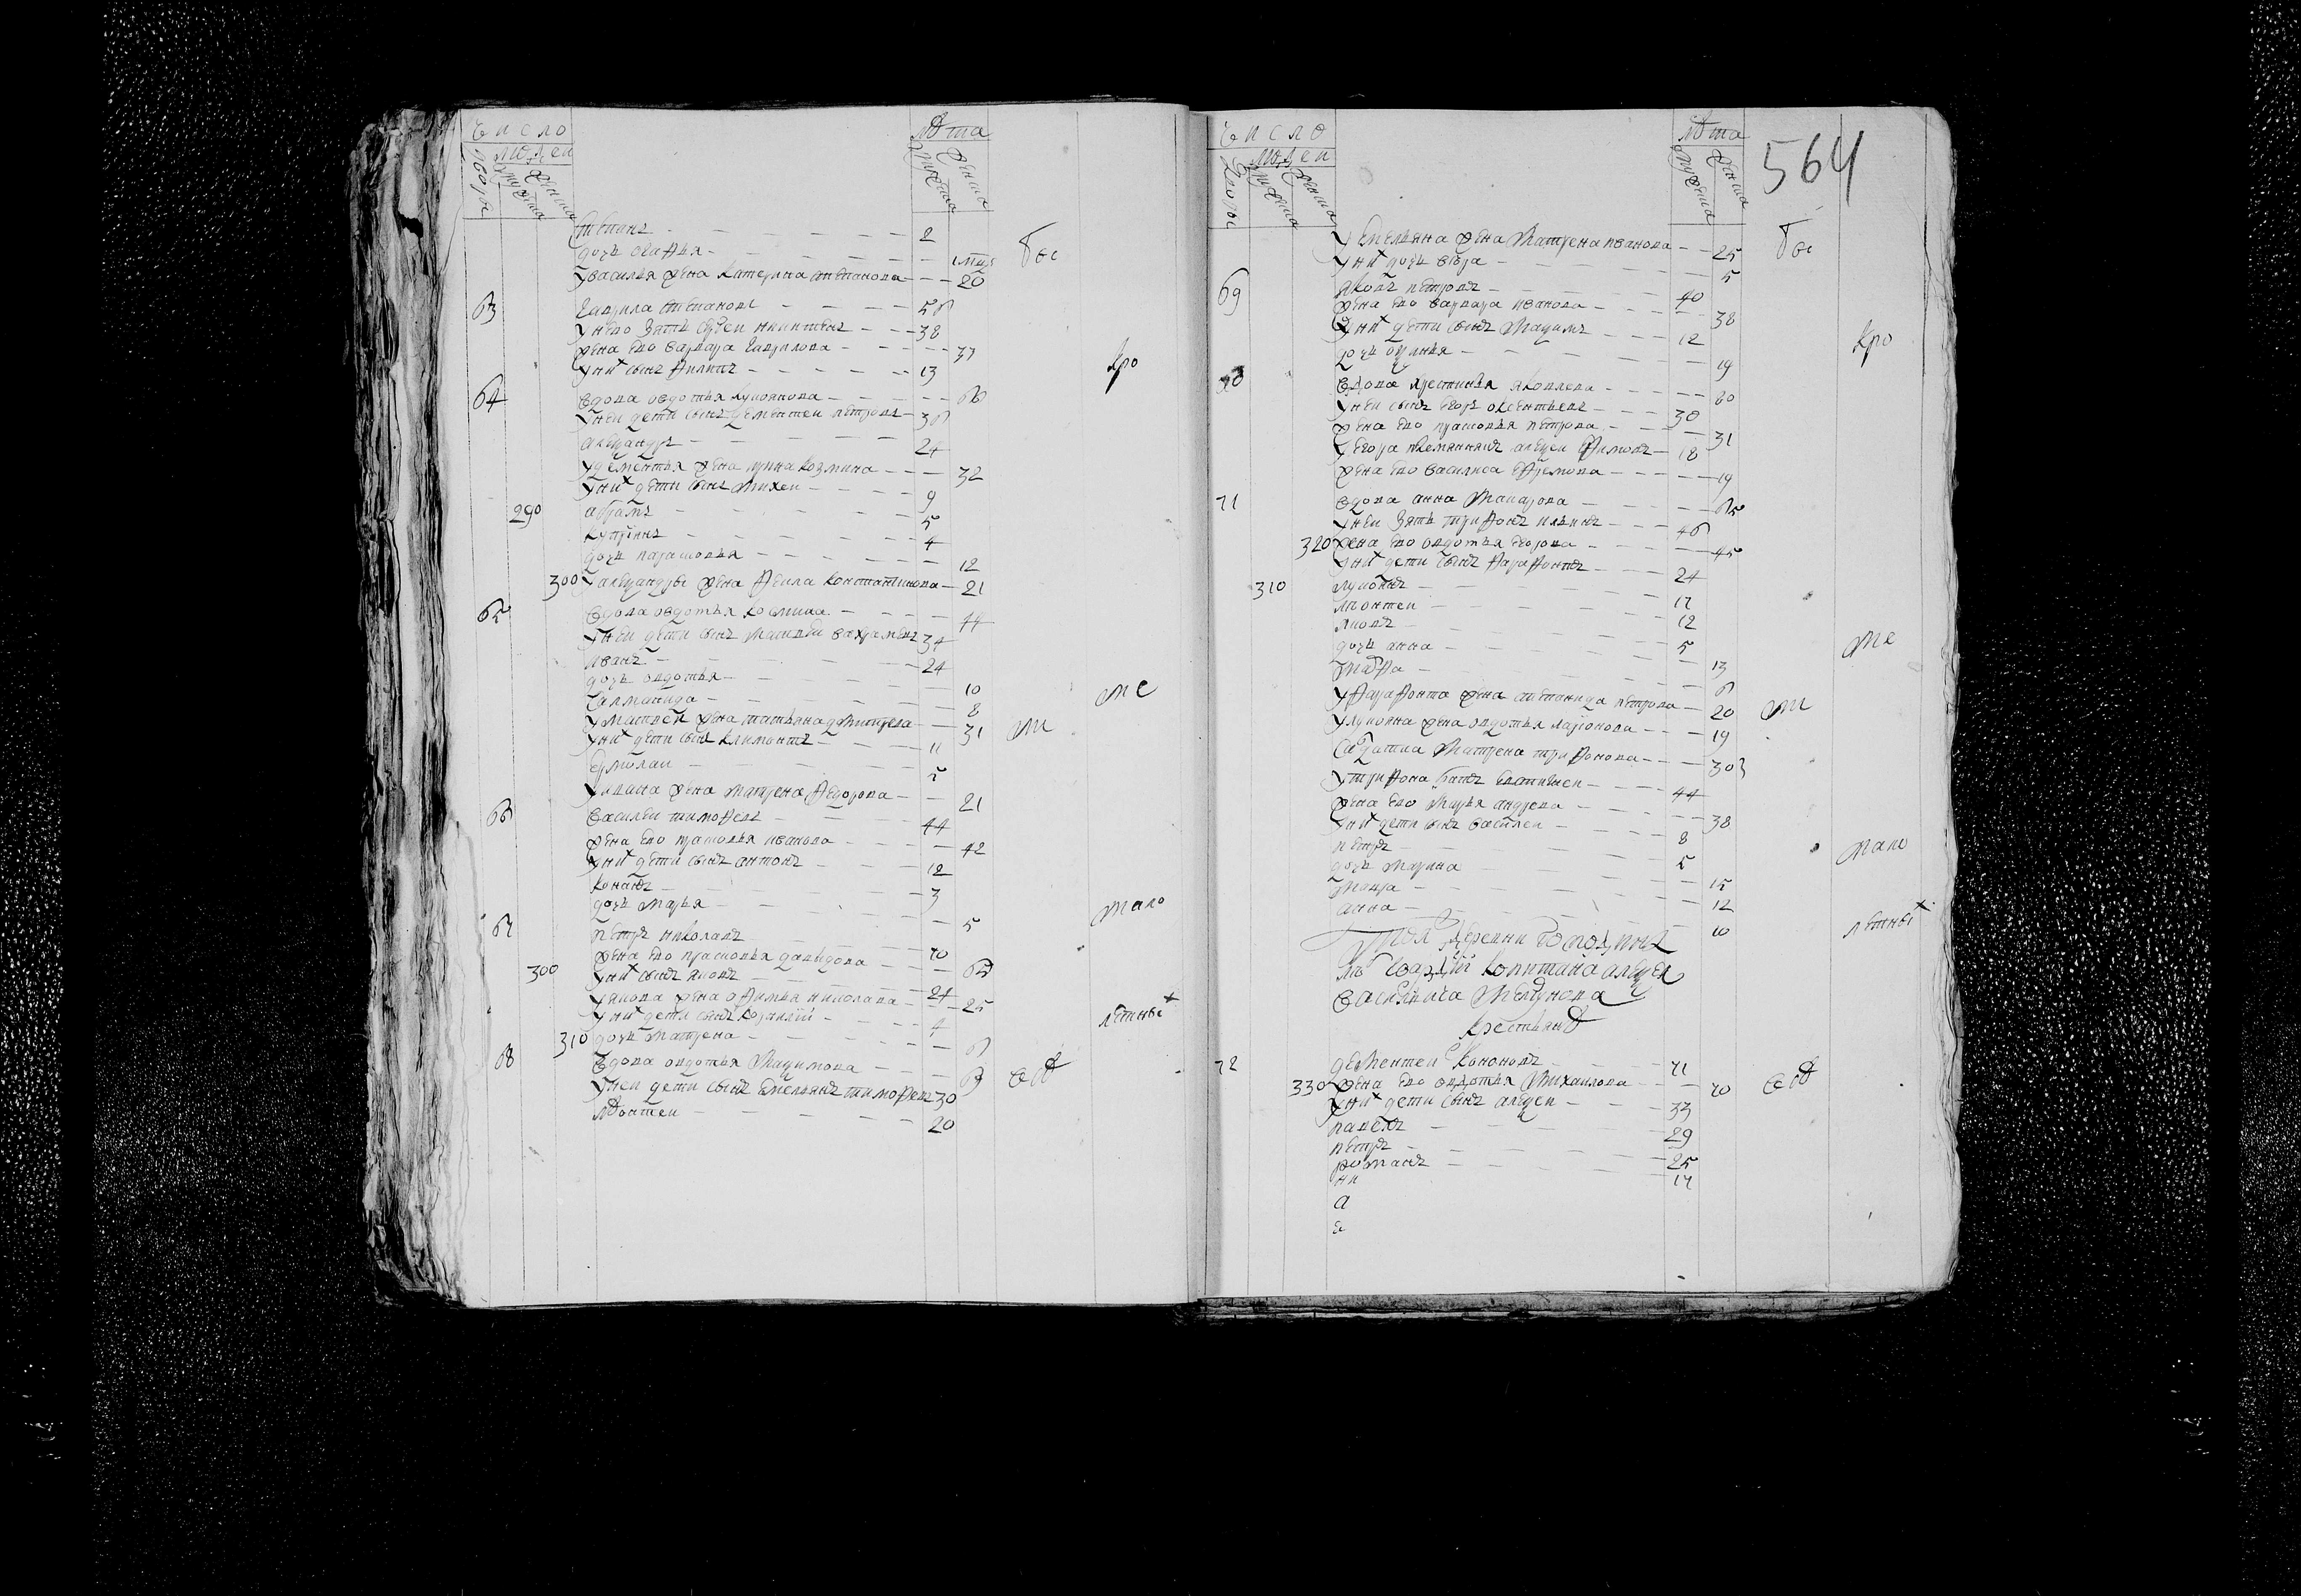 Число
людей
двора
мужеска
женска
лѣта
мужеска
женска
Степанъ 2
дочь Агафья 1 мцъ
бы
у Василья жена Катерина Степанова 20
63 Гаврила Степановъ 56
у него зять Сергеи Никитинъ 38
жена ево Варвара Гаврилова 37
кро
у них сынъ Филипъ 13
64 вдова Овдотья Лукоянова 66
у неи дети сынъ Дементеи Петровъ 36
Александръ 24
у Дементья жена Ирина Козмина 32
у них дети сынъ Михеи 9
290 Абрамъ 5
Куприянъ 4
дочь Парасковья 12
300 у Александры жена Фекла Константинова 21
65 вдова Овдотья Космина 44
у неи дети сынъ Матвеи Вахрамеевъ 34
Иванъ 24
дочь Овдотья 10
Саламанида 8
же
у Матвея жена Татьяна Дмитрева 31
м
у них дети сынъ Климонтъ 11
Ермолаи 5
у Ивана жена Матрена Федорова 21
66 Василеи Тимофеевъ 44
жена ево Прасковья Иванова 42
у них дети сынъ Антонъ 12
Конанъ 3
дочь Марья 5
мало
67 Петръ Николаевъ 70
жена ево Прасковья Давыдова 65
300 у них сынъ Яковъ 24
у Якова жена Офимья Николаева 25
у них дети сынъ 4
летных
310 дочь Матрена 6
68 вдова Овдотья Максимова 63
всѣ
у неи дети сынъ Емельянъ Тимофеевъ 30
Леонтеи 20
число
людеи
двора
мужеска
женска
лѣта
мужеска
женска
564
у Емельяна жена Матрена Иванова 25
бы
у них дочь 5
69 Яковъ Петровъ 40
жена ево Варвара Иванова 38
у них дети сынъ Максимъ 12
дочь 19
кро
70 вдова Крестинья Яковлева 80
у неи сынъ Егоръ Оксентьевъ 30
жена ево Прасковья Петрова 31
у Егора племянникъ Алексеи Фимовъ 18
жена ево Василиса Ефремова 19
71 вдова Анна Макарова 65
у неи зять Трифонъ Ильинъ 46
320 жена ево Овдотья Егорова 45
у них дети сынъ Фарафонтъ 24
310 Лукоянъ 17
Леонтеи 12
Яковъ 5
дочь Анна 13
же
Марфа 6
у Фарафонта жена Степанида Петрова 20
м
у Лукояна жена Овдотья Ларионова 19
Салдатка Матрена Трифонова 30
у Трифона братъ Евстигнеи 44
жена ево Марья Андреева 38
у них дети сынъ Василеи 8
Петръ 5
дочь Марина 15
мало
Мавра 12
Анна 10
летных
Тоя деревни
капитана Алексея
Васильевича
крестьянѣ
72 Дементеи Кононовъ 71
330 жена ево Овдотья Михаилова 70
всѣ
у них дети сынъ Алексеи 33
Павелъ 29
Петръ 25
Романъ 17
ни
а